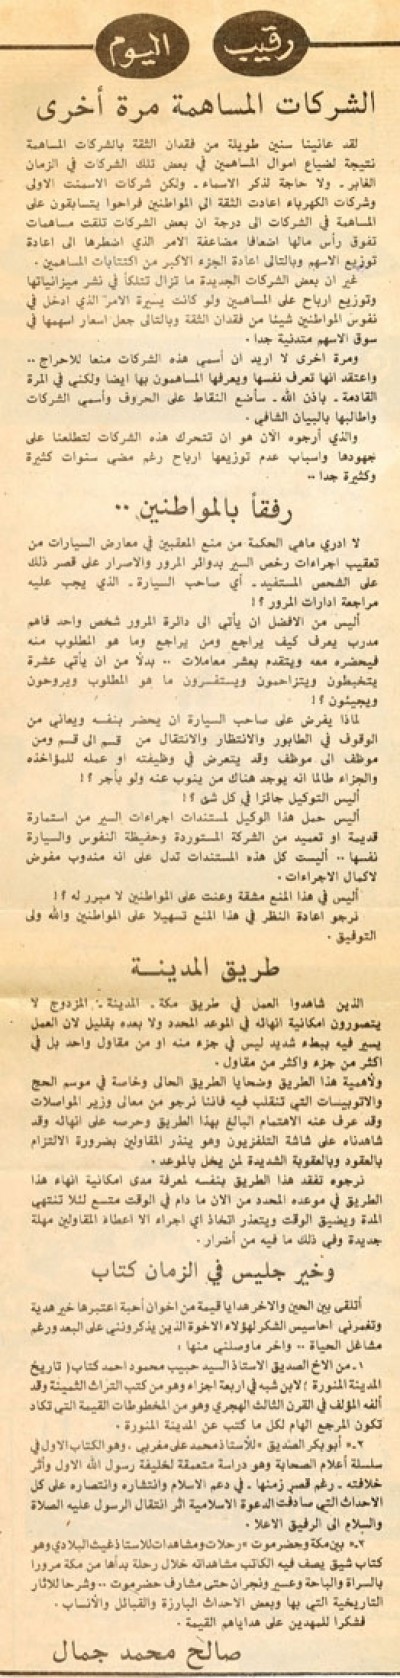 رقيب اليوم
الشركات المساهمة مرة أخرى
لقد عانينا سنين طويلة من فقدان الثقة بالشركات المساهمة
نتيجة لضياع اموال المساهمين في بعض تلك الشركات في الزمان
الغابر ـ ولا حاجة لذكر الاسماء ـ ولكن شركات الاسمنت الاولى
وشركات الكهرباء اعادت الثقة الى المواطنين فراحوا يتسابقون على
المساهمة في الشركات الى درجة ان بعض الشركات تلقت مساهمات
تفوق رأس مالها اضعافا مضاعفة الامر الذي اضطرها الى اعادة
توزيع الاسهم وبالتالى اعادة الجزء الاكبر من اكتتابات المساهمين .
غير ان بعض الشركات الجديدة ما تزال تتلكأ في نشر ميزانياتها
وتوزيع ارباح على المساهمين ولو كانت يسيرة الامر الذي ادخل في
نفوس المواطنين شيئا من فقدان الثقة وبالتالى جعل اسعار اسهمها في
سوق الاسهم متدنية جدا .
ومرة اخرى لا اريد ان أسمي هذه الشركات منعا للاحراج ..
واعتقد انها تعرف نفسها ويعرفها المساهمون بها ايضا ولكني في المرة
القادمة ـ باذن الله ـ سأضع النقاط على الحروف وأسمي الشركات
واطالبها بالبيان الشافي .
والذي أرجوه الآن هو ان تتحرك هذه الشركات لتطلعنا على
جهودها واسباب عدم توزيعها ارباح رغم مضي سنوات كثيرة
وكثيرة جدا ..
رفقاً بالمواطنين ..
لا ادري ماهي الحكمة من منع المعقبين في معارض السيارات من
تعقيب اجراءات رخص السير بدوائر المرور والاصرار على قصر ذلك
على الشخص المستفيد ـ أي صاحب السيارة ـ الذي يجب عليه
مراجعة ادارات المرور ؟!
أليس من الافضل ان يأتي الى دائرة المرور شخص واحد فاهم
مدرب يعرف كيف يراجع ومن يراجع وما هو المطلوب منه
فيحضره معه ويتقدم بعشر معاملات .. بدلاً من ان يأتي عشرة
يتخبطون ويتزاحمون ويستفسرون ما هو المطلوب ويروحون
ويجيئون ؟!
لماذا يفرض على صاحب السيارة ان يحضر بنفسه ويعاني من
الوقوف في الطابور والانتظار والانتقال من قسم الى قسم ومن
موظف الى موظف وقد يتعرض في وظيفته او عمله للمؤاخذه
والجزاء طالما انه يوجد هناك من ينوب عنه ولو بأجر ؟!
أليس التوكيل جائزا في كل شئ ؟!
أليس حمل هذا الوكيل لمستندات اجراءات السير من استمارة
قديمة او تعميد من الشركة المستوردة وحفيظة النفوس والسيارة
نفسها .. أليست كل هذه المستندات تدل على انه مندوب مفوض
لاكمال الاجراءات .
أليس في هذا المنع مشقة وعنت على المواطنين لا مبرر له ؟!
نرجو اعادة النظر في هذا المنع تسهيلا على المواطنين والله ولى
التوفيق .
طريق المدينة
الذين شاهدوا العمل في طريق مكة ـ المدينة ـ المزدوج لا
يتصورون امكانية انهائه في الموعد المحدد ولا بعده بقليل لان العمل
يسير فيه ببطء شديد ليس في جزء منه او من مقاول واحد بل في
اكثر من جزء واكثر من مقاول .
ولأهمية هذا الطريق وضحايا الطريق الحالى وخاصة في موسم الحج
والاتوبيسات التي تنقلب فيه فاننا نرجو من معالى وزير المواصلات
وقد عرف عنه الاهتمام البالغ بهذا الطريق وحرصه على انهائه وقد
شاهدناه على شاشة التلفزيون وهو ينذر المقاولين بضرورة الالتزام
بالعقود وبالعقوبة الشديدة لمن يخل بالموعد .
نرجوه تفقد هذا الطريق بنفسه لمعرفة مدى امكانية انهاء هذا
الطريق في موعده المحدد من الآن ما دام في الوقت متسع لئلا تنتهي
المدة ويضيق الوقت ويتعذر اتخاذ اي اجراء الا اعطاء المقاولين مهلة
جديدة وفي ذلك ما فيه من أضرار .
وخير جليس في الزمان كتاب
أتلقى بين الحين والآخر هدايا قيمة من اخوان أحبة اعتبرها خير هدية
وتغمرني احاسيس الشكر لهؤلاء الاخوة الذين يذكرونني على البعد ورغم
مشاغل الحياة .. وآخر ماوصلني منها :
١ـ من الاخ الصديق الاستاذ السيد حبيب محمود احمد كتاب ( تاريخ
المدينة المنورة ) لابن شبه في اربعة اجزاء وهو من كتب التراث الثمينة وقد
ألفه المؤلف في القرن الثالث الهجري وهو من المخطوطات القيمة التي تكاد
تكون المرجع الهام لكل ما كتب عن المدينة المنورة .
٢ـ « أبو بكر الصديق » للأستاذ محمد على مغربي . وهو الكتاب الاول في
سلسلة أعلام الصحابة وهو دراسة متعمقة لخليفة رسول الله الاول وأثر
خلافته ـ رغم قصر زمنها ـ في دعم الاسلام وانتشاره وانتصاره على كل
الاحداث التي صادفت الدعوة الاسلامية اثر انتقال الرسول عليه الصلاة
والسلام الى الرفيق الاعلا .
٣ـ « بين مكة وحضرموت » رحلات ومشاهدات للاستاذ غيث البلادي وهو
كتاب شيق يصف فيه الكاتب مشاهداته خلال رحلة بدأها من مكة مرورا
بالسراة والباحة وعسير ونجران حتى مشارف حضرموت .. وشرحا للآثار
التاريخية التي بها وبعض الاحداث البارزة والقبائل والأنساب .
فشكرا للمهدين على هداياهم القيمة .
صالح محمد جمال